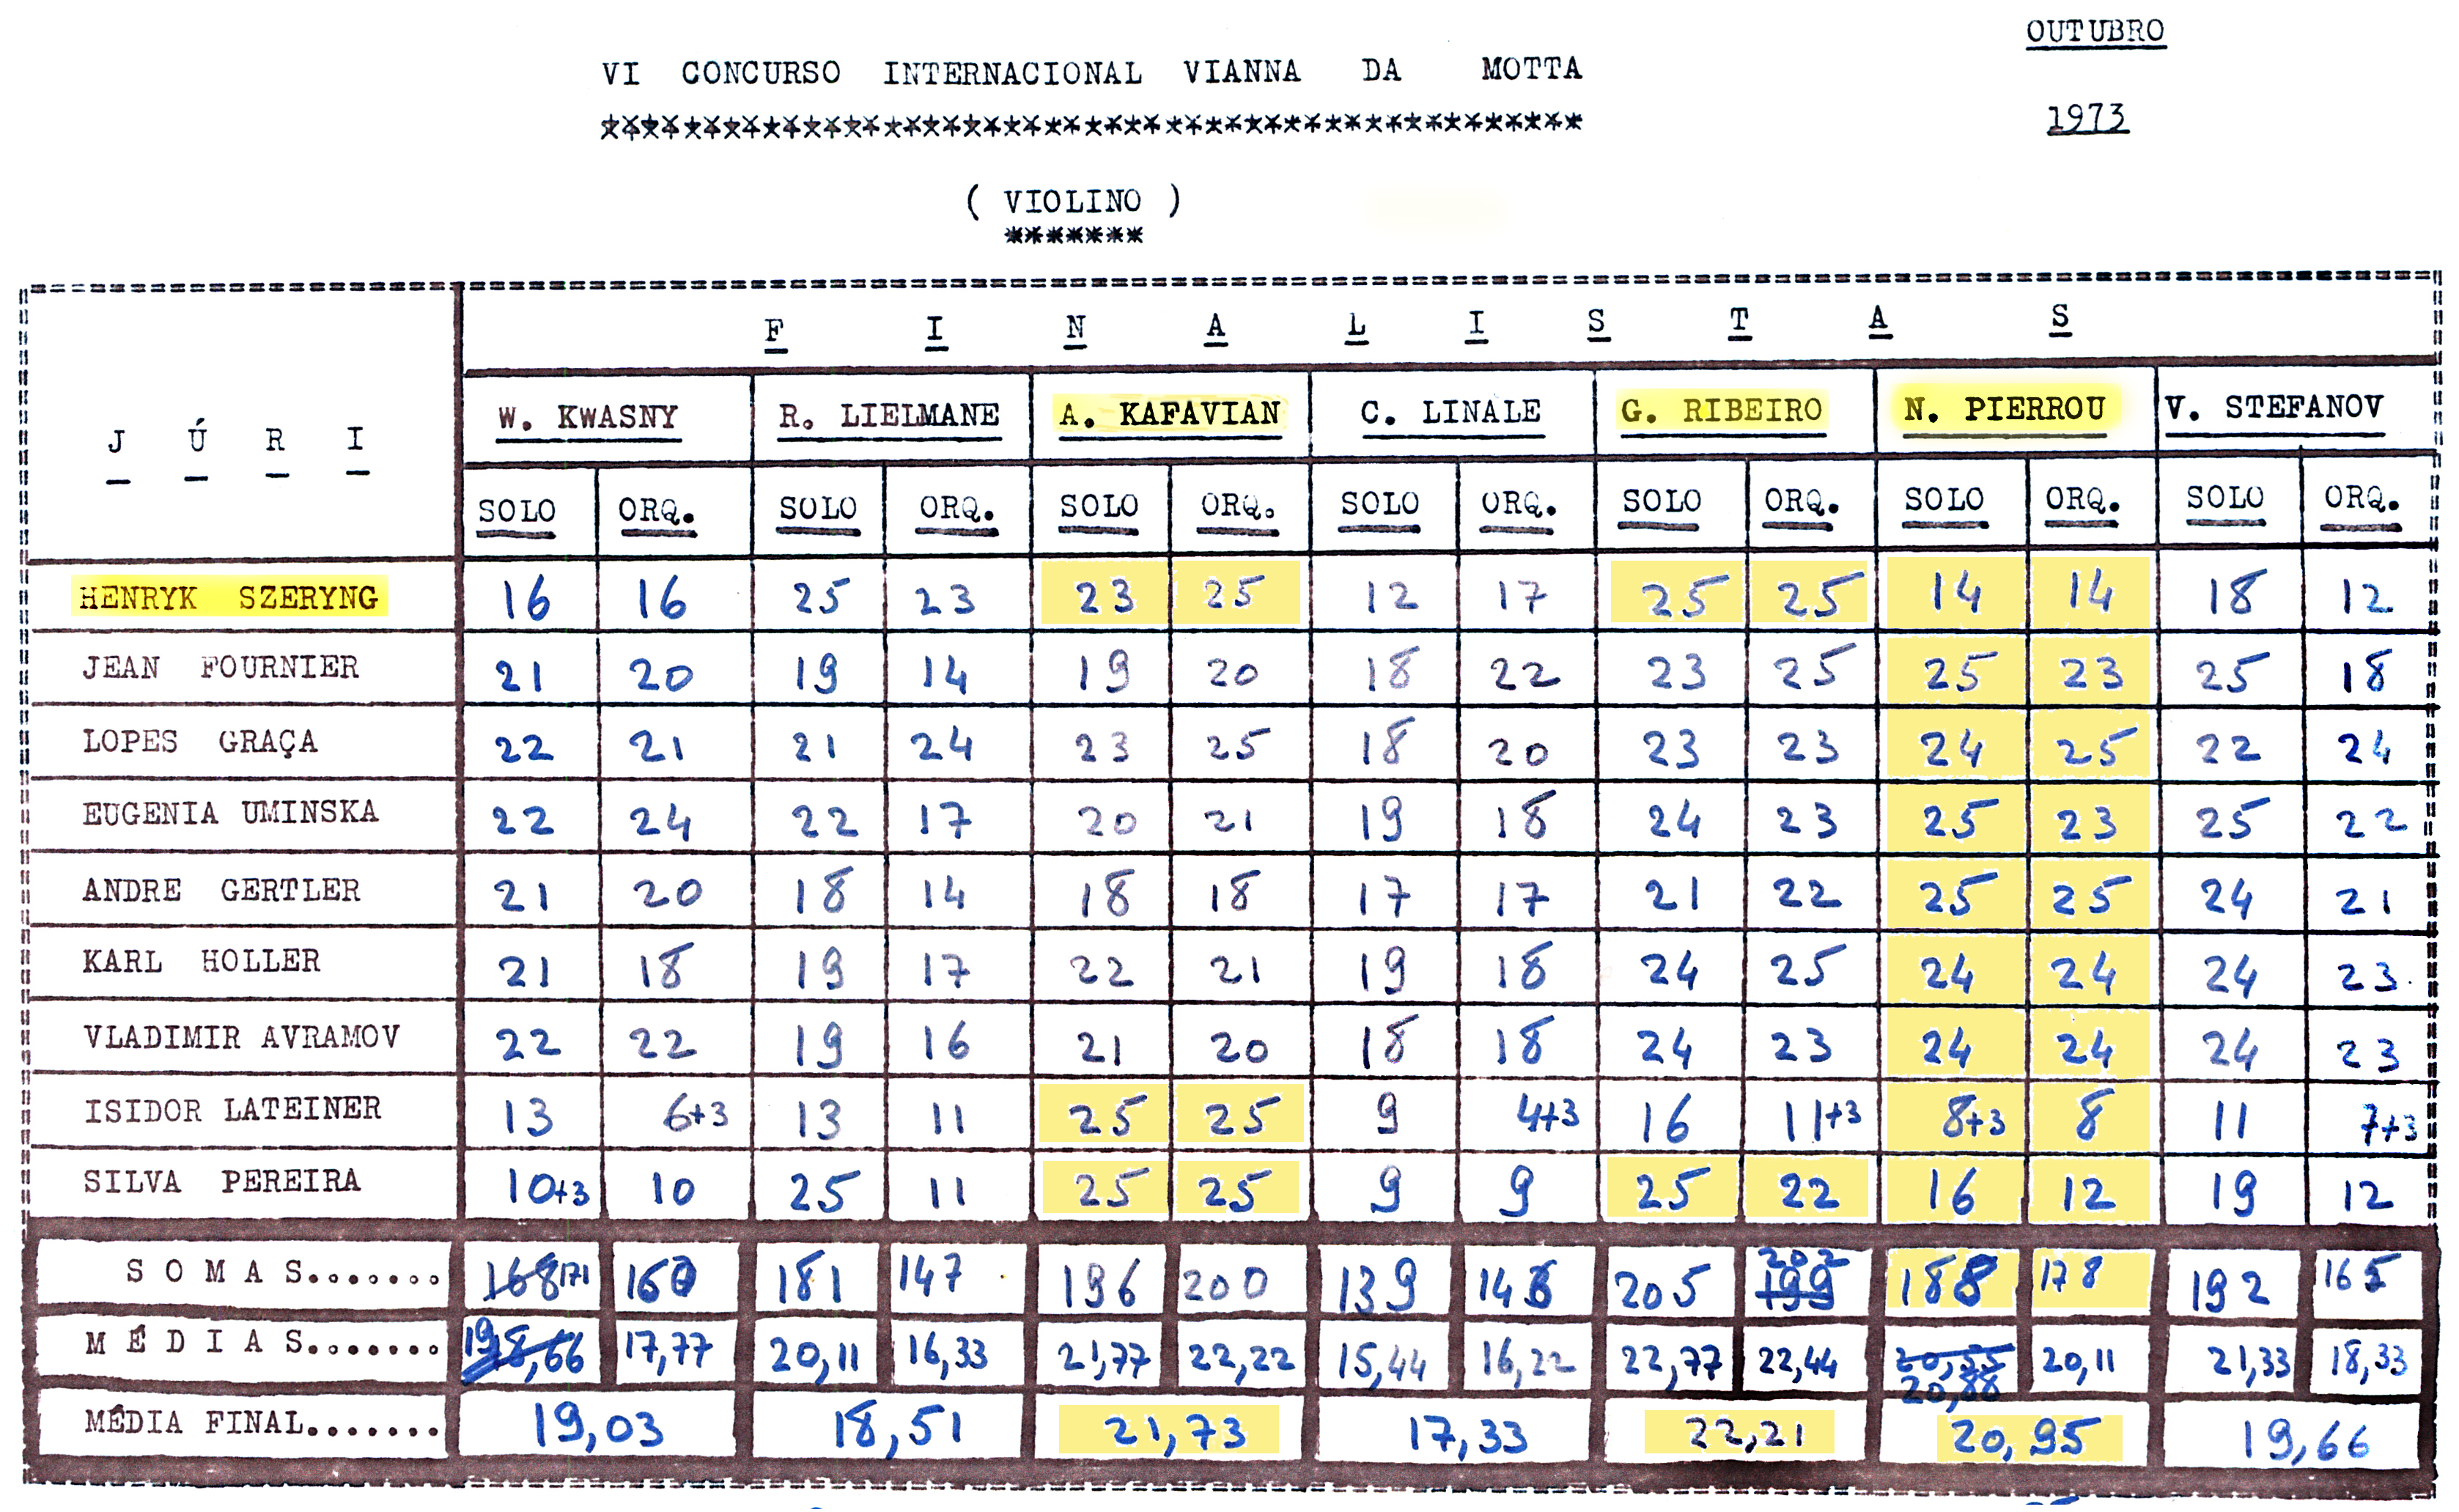 OUTUBRO
VI CONCURSO INTERNACIONAL VIANNA DA MOTTA
*************************************************
1973
( VIOLINO )
*******
F I N A L I S T A S
J Ú R I
W. KWASNY R. LIELMANE A. KAFAVIAN C. LINALE G. RIBEIRO N. PIERROU V. STEFANOV
SOLO ORQ. SOLO ORQ. SOLO ORQ. SOLO ORQ. SOLO ORQ. SOLO ORQ. SOLO ORQ.
HENRYK SZERYNG 16 16 25 23 23 25 12 17 25 25 14 14 18 12
JEAN FOURNIER 21 20 19 14 19 20 18 22 23 25 25 23 25 18
LOPES GRAÇA 22 21 21 24 23 25 18 20 23 23 24 25 22 24
EUGENIA UMINSKA 22 24 22 17 20 21 19 18 24 23 25 23 25 22
ANDRE GERTLER 21 20 18 14 18 18 17 17 21 22 25 25 24 21
KARL HOLLER 21 18 19 17 22 21 19 18 24 25 24 24 24 23
VLADIMIR AVRAMOV 22 22 19 16 21 20 18 18 24 23 24 24 24 23
ISIDOR LATEINER 13 6+3 13 11 25 25 9 4+3 16 11+3 8+3 8 11 7+3
SILVA PEREIRA 10+3 10 25 11 25 25 9 9 25 22 16 12 19 12
S O M A S....... 168 171 160 181 147 196 200 139 146 205 202 199 188 178 192 165
M É D I A S....... 19 18,66 17,77 20,11 16,33 21,77 22,22 15,44 16,22 22,77 22,44 20,55 20,88 20,11 21,33 18,33
MÉDIA FINAL....... 19,03 18,51 21,73 17,33 22,21 20,95 19,66